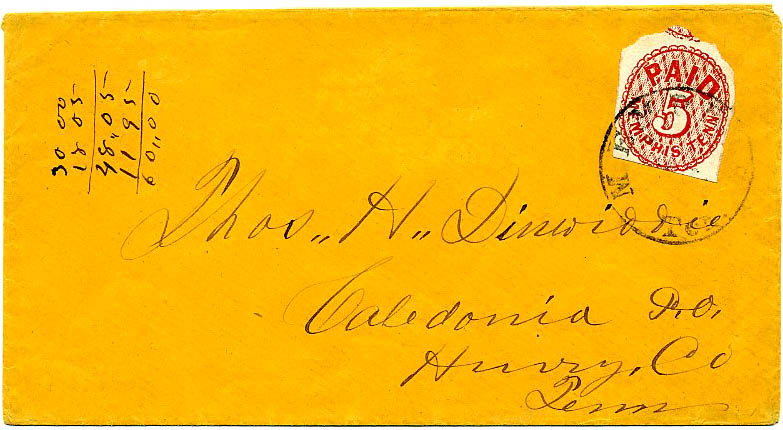 30 00
18 05
48"05
11 95
60"00
PAID
5
MEMPHIS TENN
Thos„ H„ Dinwiddie
Caledonia P.O.
Henry, Co
Tenn